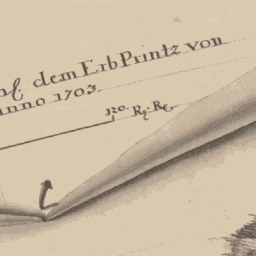 dem ErbPrintz von
anno 1703
120. Rh. Rh.